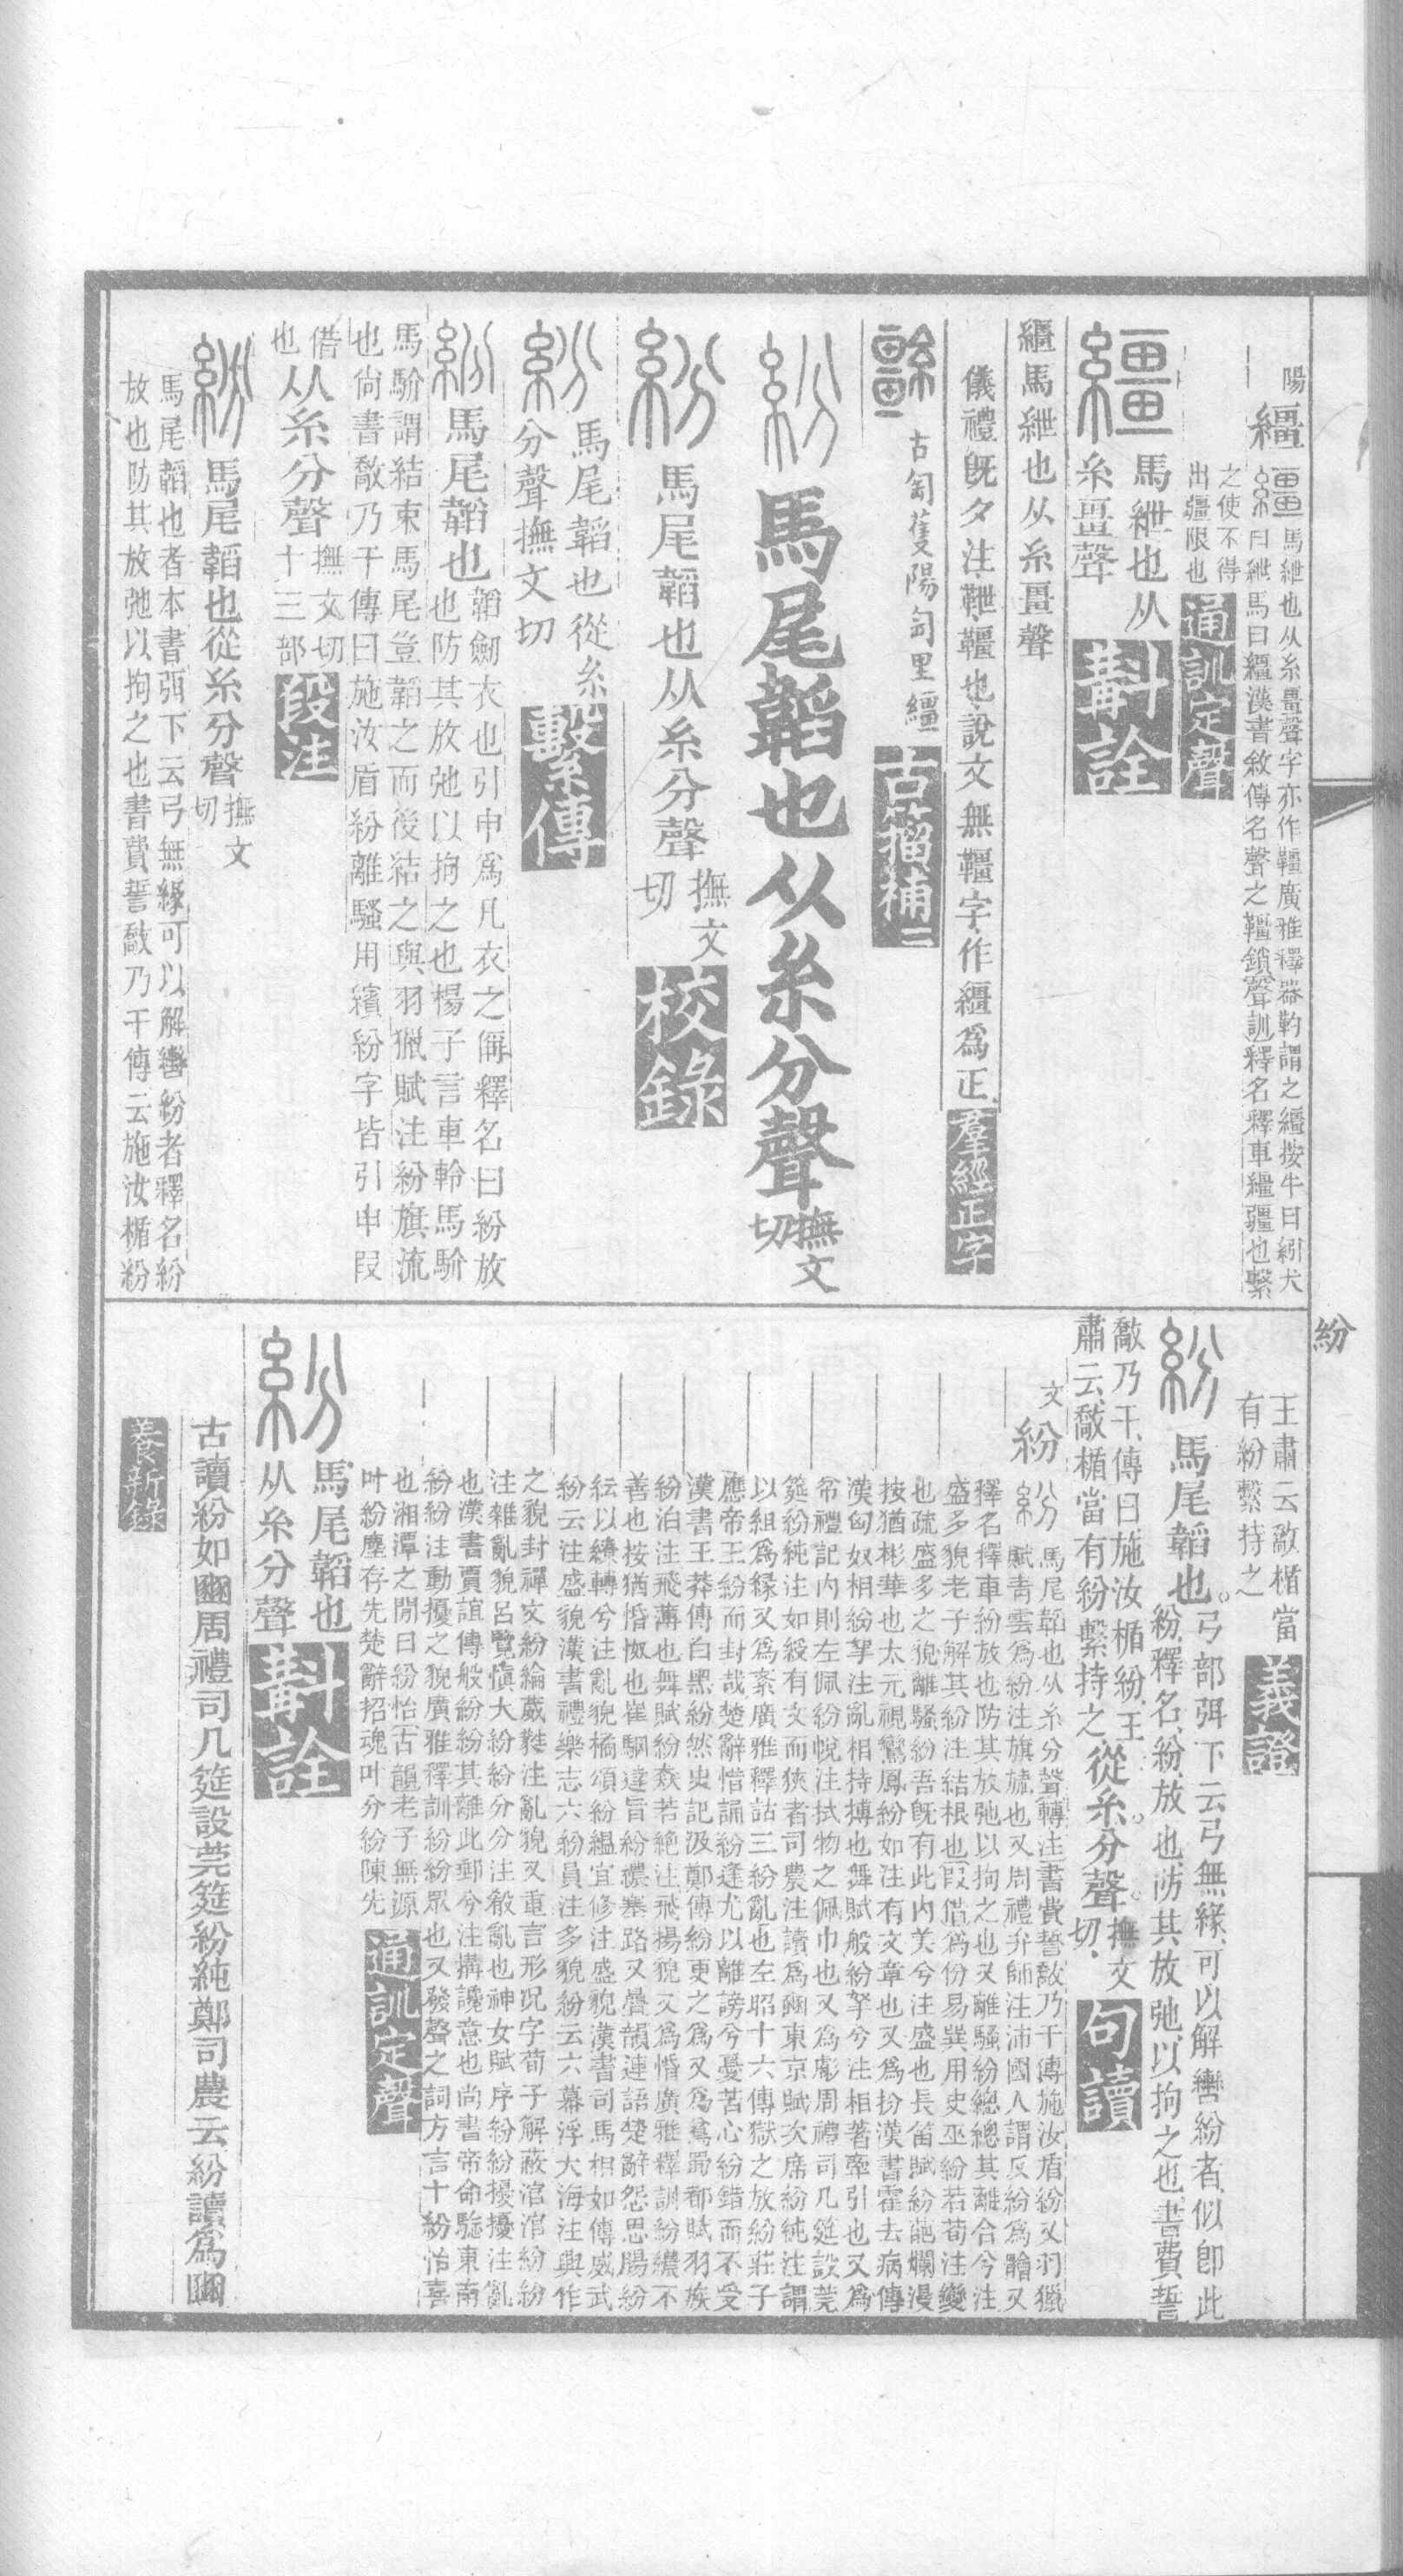 陽
繮
繮馬紲也从糸畺聲字亦作韁廣雅釋器靮謂之繮按牛曰紖犬
曰紲馬曰繮漢書敘傳名聲之韁鎖聲訓釋名釋車繮疆也繫
之使不得
出疆限也
通訓定聲
繮馬紲也从
糸畺聲
斠詮
繮馬紲也从糸畺聲
儀禮旣夕注靾韁也說文無韁字作繮爲正
羣經正字
古匋蒦陽匋里繮
古籀補二
紛馬尾韜也从糸分聲撫文
切
紛馬尾韜也从糸分聲撫文
切
校錄
紛馬尾韜也從糸
分聲撫文切
繫傳
紛馬尾韜也韜劒衣也引申爲凡衣之偁釋名曰紛放
也防其放弛以拘之也楊子言車軨馬馻
馬馻謂結束馬尾豈韜之而後結之與羽獵賦注紛旗流
也尙書敿乃干傳曰施汝盾紛離騷用繽紛字皆引申叚
借
也从糸分聲撫文切
十三部
段注
紛馬尾韜也從糸分聲撫文
切
馬尾韜也者本書弭下云弓無緣可以解轡紛者釋名紛
放也防其放弛以拘之也書費誓敿乃干傳云施汝楯紛
紛
王肅云敿楯當
有紛繫持之
義證
紛馬尾韜也。弓部弭下云弓無緣、可以解轡紛者、似卽此
紛、釋名、紛、放也、防其放弛、以拘之也、書費誓
敿乃干、傳曰、施汝楯紛、王
肅云、敿楯當有紛繫持之、從糸。分聲。撫文
切、
句讀
文
紛
紛馬尾韜也从糸分聲轉注書費誓敿乃干傳施汝盾紛又羽獵
賦靑雲爲紛注旗旒也又周禮弁師注沛國人謂反紛爲䯤又
釋名釋車紛放也防其放弛以拘之也又離騷紛總總其離合兮注
盛多貌老子解其紛注結根也叚借爲份易巽用史巫紛若荀注變
也疏盛多之貌離騷紛吾旣有此內美兮注盛也長笛賦紛葩爛漫
按猶彬華也太元視鸞鳳紛如注有文章也又爲扮漢書霍去病傳
漢匈奴相紛拏注亂相持搏也舞賦般紛挐兮注相著牽引也又爲
帉禮記內則左佩紛帨注拭物之佩巾也又爲彪周禮司几筵設莞
筵紛純注如綬有文而狹者司農注讀爲豳東京賦次席紛純注謂
以組爲緣又爲紊廣雅釋詁三紛亂也左昭十六傳獄之放紛莊子
應帝王紛而封哉楚辭惜誦紛逢尤以離謗兮憂苦心紛錯而不受
漢書王莽傳白黑紛然史記汲鄭傳紛更之爲又爲鳻蜀都賦羽族
紛泊注飛薄也舞賦紛猋若絕注飛揚貌又爲惛廣雅釋訓紛繷不
善也按猶惛怓也崔駰達旨紛繷塞路又疊韻連語楚辭怨思腸紛
紜以繚轉兮注亂貌橘頌紛緼宜修注盛貌漢書司馬相如傳威武
紛云注盛貌漢書禮樂志六紛員注多貌紛云六幕浮大海注與作
之貌封禪文紛綸葳蕤注亂貌又重言形況字荀子解蔽涫涫紛紛
注雜亂貌呂覽愼大紛紛分分注殽亂也神女賦序紛紛擾擾注亂
也漢書賈誼傳般紛紛其離此郵兮注搆讒意也尚書帝命驗東南
紛紛注動擾之貌廣雅釋訓紛紛眾也又發聲之詞方言十紛怡喜
也湘潭之閒曰紛怡古韻老子無源
叶紛塵存先楚辭招魂叶分紛陳先
通訓定聲
紛馬尾韜也
从糸分聲
斠詮
古讀紛如豳周禮司几筵設莞筵紛純鄭司農云紛讀爲豳
養新錄